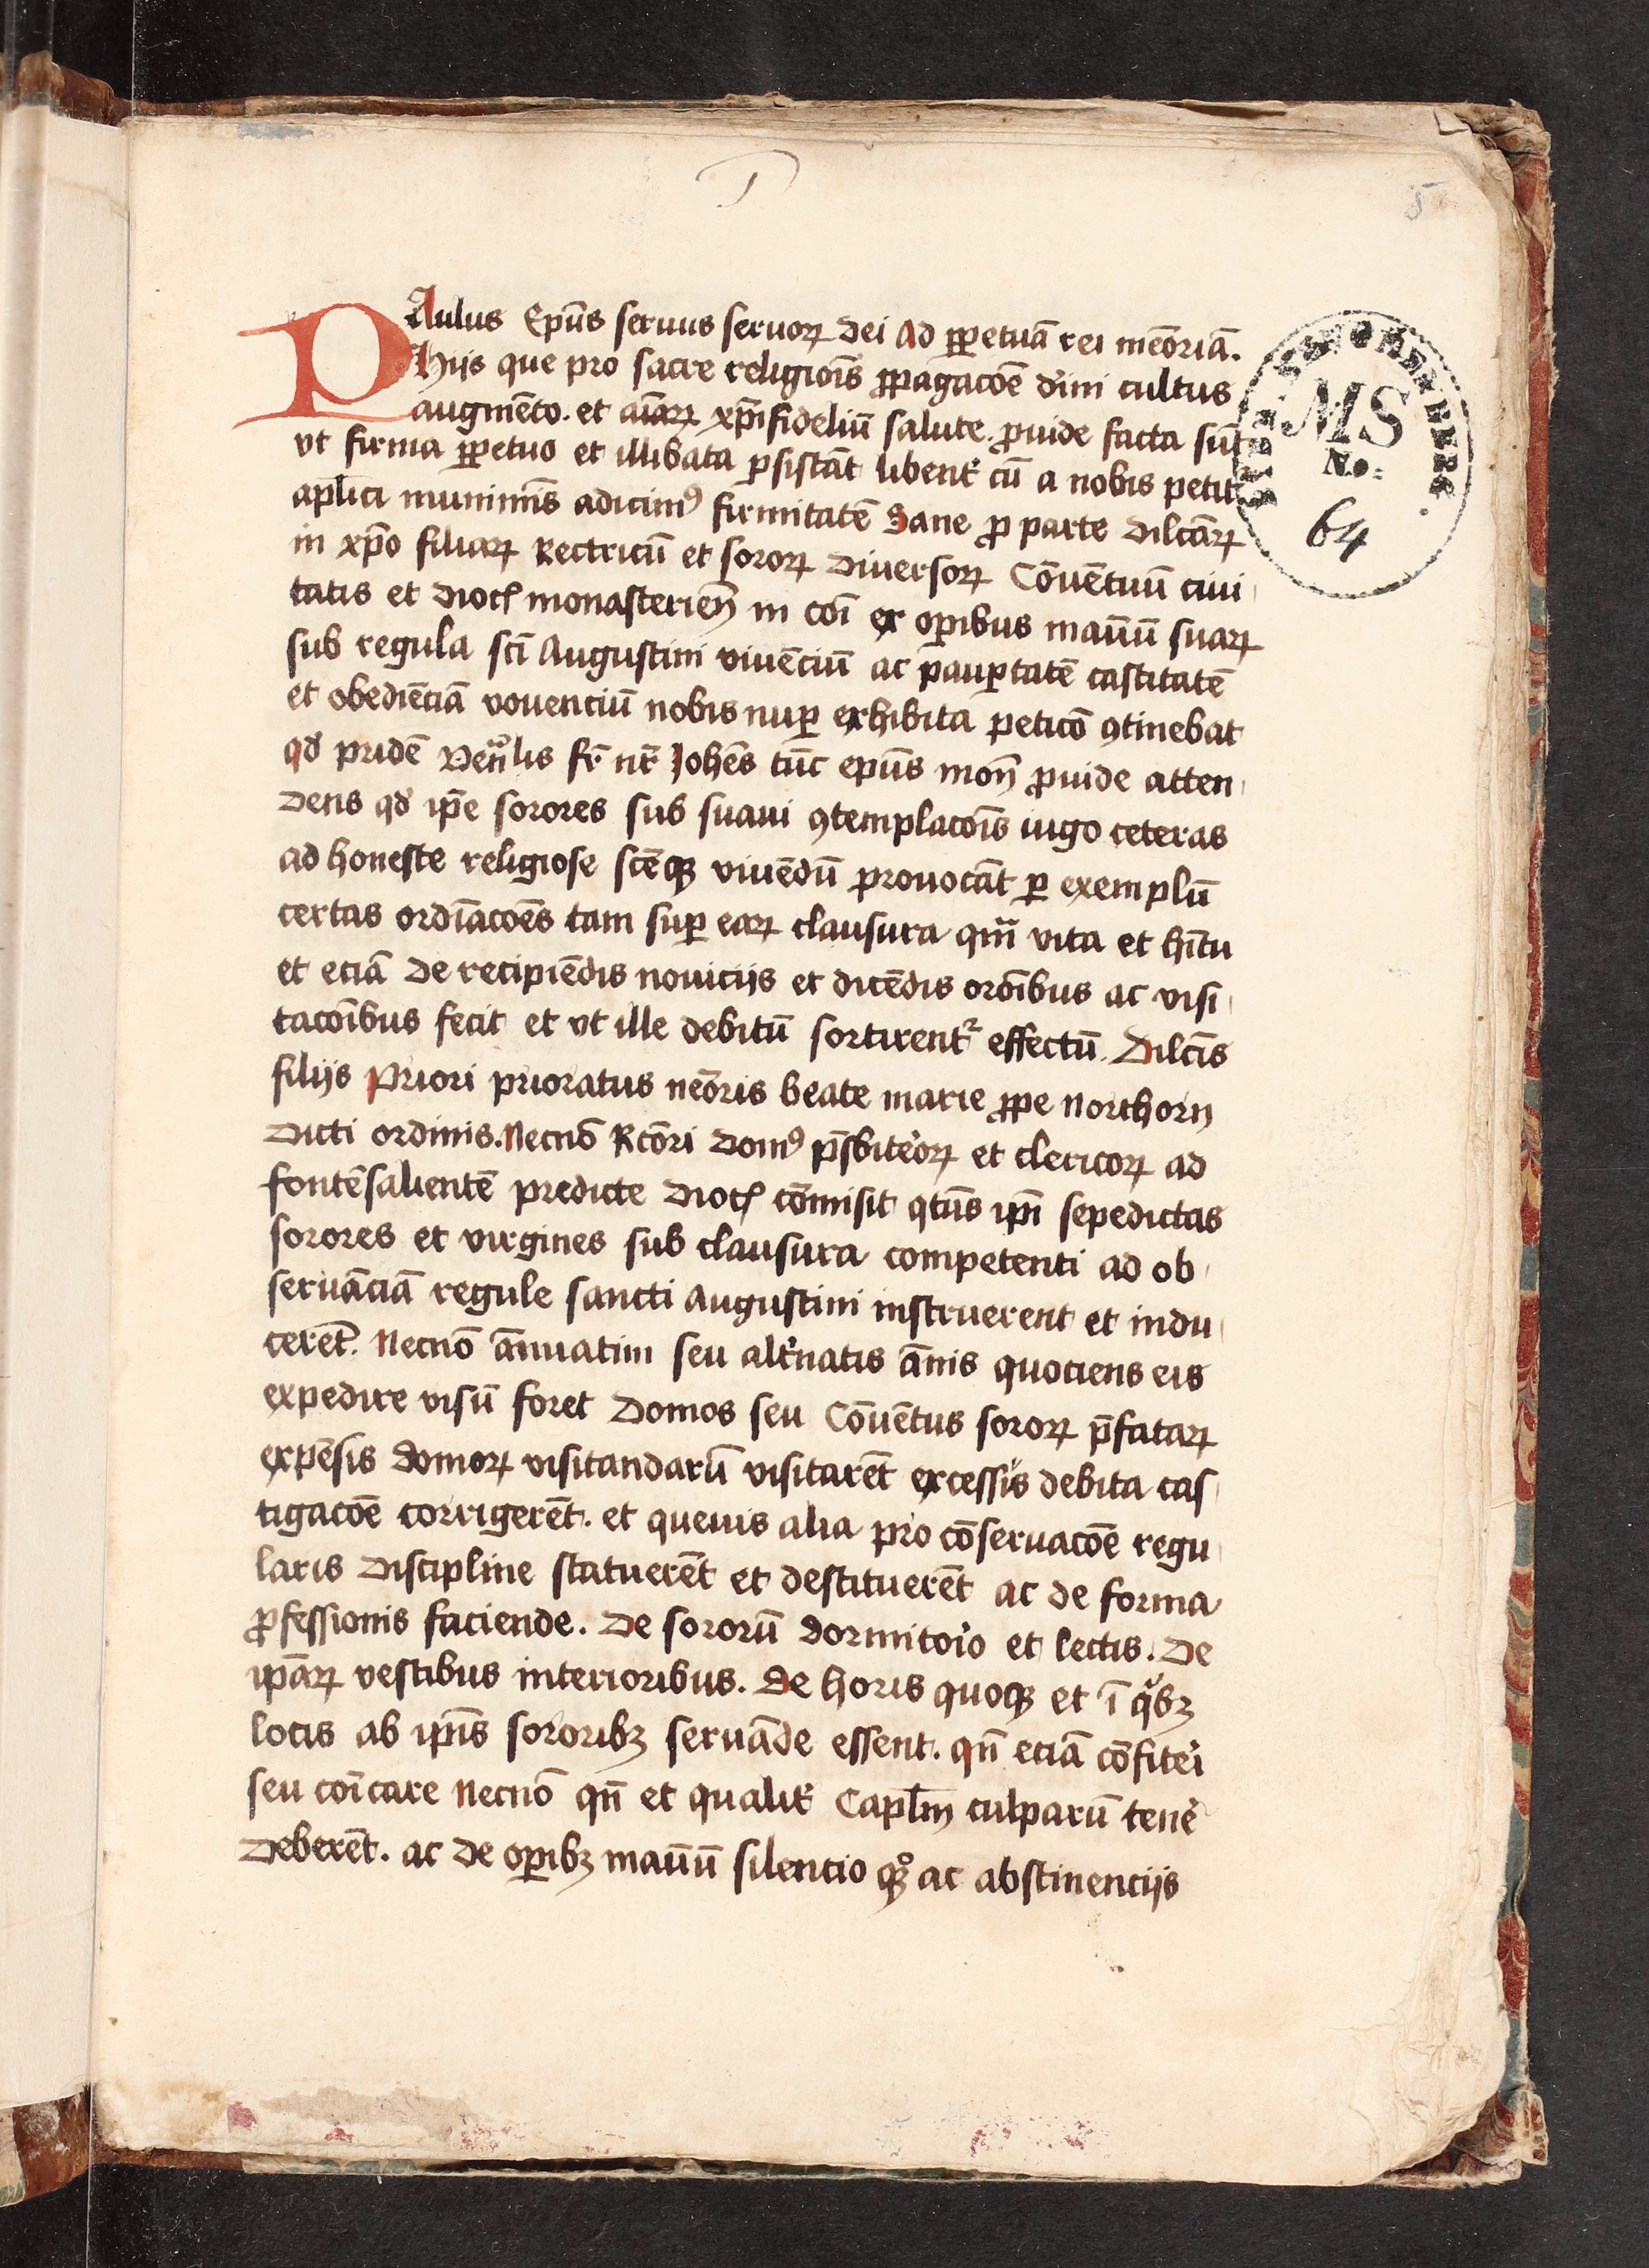 PAulus Ep̄us seruus seruoꝝ dei Ad ꝑpetuā rei meōriā.
Hijs que pro sacre religioīs ꝓpagacōe diūni cultus
augmēto. et aīaꝝ xp̄ifideliū salute. ꝓuide facta sūt
vt firma ꝑpetuo et illibata ꝑsistāt libent̾ cū a nobis petit̾
apl̄ici munimīs adicimꝰ firmitatē Sane ꝓ parte dilcāꝝ
in xp̄o filiaꝝ Rectricū et soroꝝ diuersoꝝ Cōuētuū ciui
tatis et dioc̄ monasterien̄ in coī ex oꝑibus manuū suaꝝ
sub regula scī Augustini viuēciū ac pauꝑtatē castitatē
et obediēciā vouenciū nobis nuꝑ exhibita peticō ꝯtinebat
qd̓ pridē Ven̄lis fr̄ nr̄ Johēs tūc ep̄us mon̄ ꝓuide atten
dens qd̓ ip̄e sorores sub suaui ꝯtemplacōis iugo ceteras
ad honeste religiose scēqꝫ viuēdū prouocāt ꝑ exemplū
certas ordīacōes tam suꝑ eaꝝ clausura qm̄ vita et hītu
et eciā de recipiēdis nouicijs et dicēdis orōibus ac visi
tacōibus fecit et vt ille debitū sortirent̾ effectū. Dilcīs
filijs Priori prioratus neōris beate marie ꝓpe northorn
dicti ordinis. Necnō Rcōri domꝰ p̄sbiteroꝝ et clericoꝝ ad
fontēsalientē predicte dioc̄ cōmisit qt̄us ip̄i sepedictas
sorores et virgines sub clausura competenti ad ob
seruāciā regule sancti Augustini instruerent et indu
cerēt. Necnō ānuatim seu alt̾natis ānis quociens eis
expedire visū foret domos seu Cōuētus soroꝝ p̄fataꝝ
expēsis domoꝝ visitandarū visitarēt excessus debita cas
tigacōe corrigerēt. et queuis alia pro cōseruacōe regu
laris discipline statuerēt et destituerēt ac de forma
ꝓfessionis faciende. De sororū dormitorio et lectis. De
ip̄aꝝ vestibus interioribus. De horis quoqꝫ et ī qͥbꝫ
locis ab ip̄is sororibꝫ seruāde essent. qn̄ eciā cōfiteri
seu coīcare Necnō qn̄ et qualit̾ Capl̄m culparū tene̾
deberēt. ac de oꝑibꝫ manuū silencio qꝫ ac abstinencijs
MS
No:
64